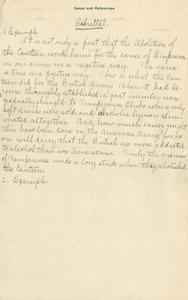 Notes and References
Rebuttal.
1. Example
It is not only a fact that the Abolition of
the Canteen works harm to the cause of temperance
in our army in a negative way. The same
is true in a positive way. This is what the Can-
teen did for the British Army. When it had be-
come thoroughly established, a great number were
gradually changed to Temperance Clubs where only
soft drinks were sold and alcoholic liquors elim-
inated altogether. And how much easier might
this have been done in the American Army, for no
one will deny that the British are more addicted
to alcohol than we Americans. Truly the enemies
of Temperance made a long stride when they abolished
the Canteen.
2. Example